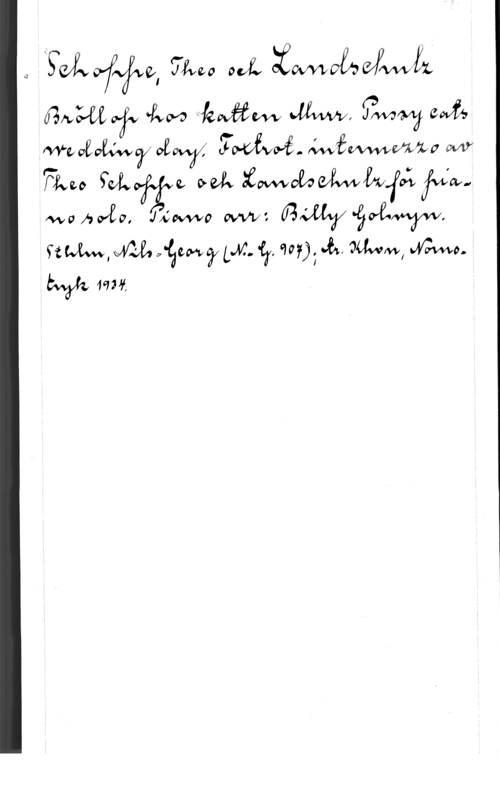 Schoppe, Theo och Landschulz
Bröllop hos katten Murr. Pussy cats
wedding day. Foxtrot-intermezzo av
Theo Schoppe och Landschulz för pia-
no solo. Piano arr: Billy Golwyn.
Sthlm, Nils-Georg (N.-G. 907); tr. Khvn, Norno-
tryk 1934.